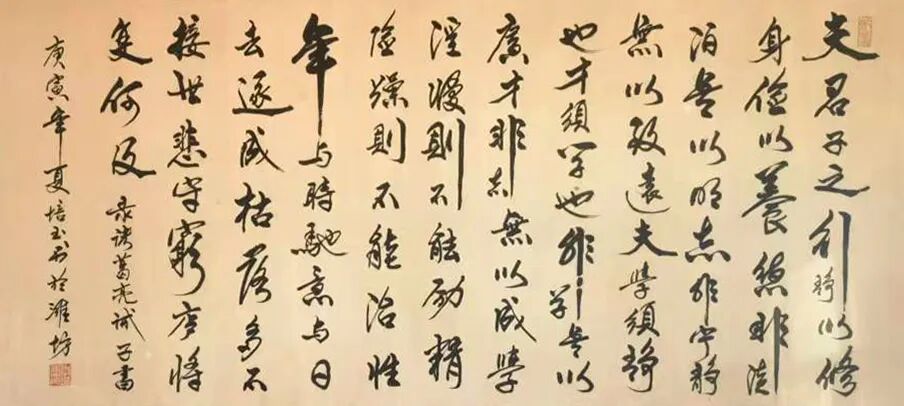 夫君子之行静以修
身俭以養德非淡
泊无以明志非宁静
無以致遠夫學須静
也才須学也非学无以
廣才非志無以成學
淫慢則不能励精
险躁則不能治性
年与時馳意与日
去遂成枯落多不
接世悲守窮庐将
复何及 录诸葛亮诫子書
庚寅年夏培玉书於潍坊